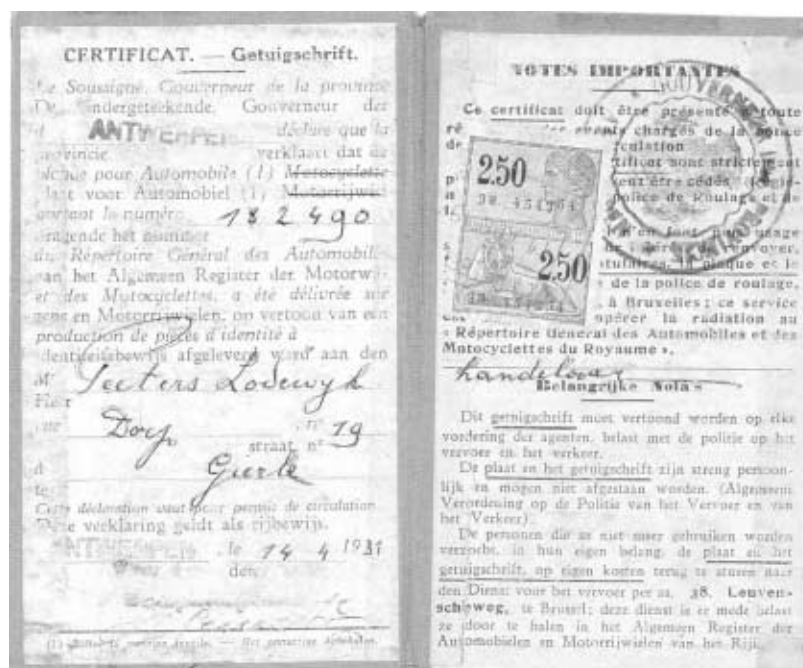 CERTIFICAT. — Getuigschrift.
Le Soussigné, Gouverneur de la province
De Ondergeteekende, Gouverneur der
d ANTWERPEN déclare que la
provincie verklaart dat de
plaque pour Automobile (1) Motocyclette
plaat voor Automobiel (1) Motorrijwiel
portant le numéro 182490
dragende het nummer
du Répertoire Général des Automobiles
van het Algemeen Register der Motorwa-
et des Motocyclettes, a été délivrée sur
gens en Motorrijwielen, op vertoon van een
production de pièces d'identité à
identiteitsbewijs afgeleverd werd aan den
Mr Peeters Lodewyk
Heer
rue Dorp, n° 19
straat, n°
à Gierle
te
Cette déclaration vaut pour permis de circulation
Deze verklaring geldt als rijbewijs.
ANTWERPEN, le 14 4 1931
den
NOTES IMPORTANTES
Ce certificat doit être présenté à toute
agents chargés de la police
circulation
certificat sont strictement
être cédés.
police de Roulage et de
2.50
2.50
usage
renvoyer,
titulaires, la plaque et le
de la police de roulage,
à Bruxelles; ce service
opérer la radiation au
« Répertoire Général des Automobiles et des
Motocyclettes du Royaume ».
handelaar
Belangrijke Nota's
Dit getuigschrift moet vertoond worden op elke
vordering der agenten, belast met de politie op het
vervoer en het verkeer.
De plaat en het getuigschrift zijn streng persoon-
lijk en mogen niet afgestaan worden. (Algemeen
Verordening op de Politie van het Vervoer en van
het Verkeer).
De personen die ze niet meer gebruiken worden
verzocht, in hun eigen belang, de plaat en het
getuigschrift, op eigen kosten terug te sturen naar
den Dienst voor het vervoer per as, 38, Leuven-
scheweg, te Brussel; deze dienst is er mede belast
ze door te halen in het Algemeen Register der
Automobielen en Motorrijwielen van het Rijk.